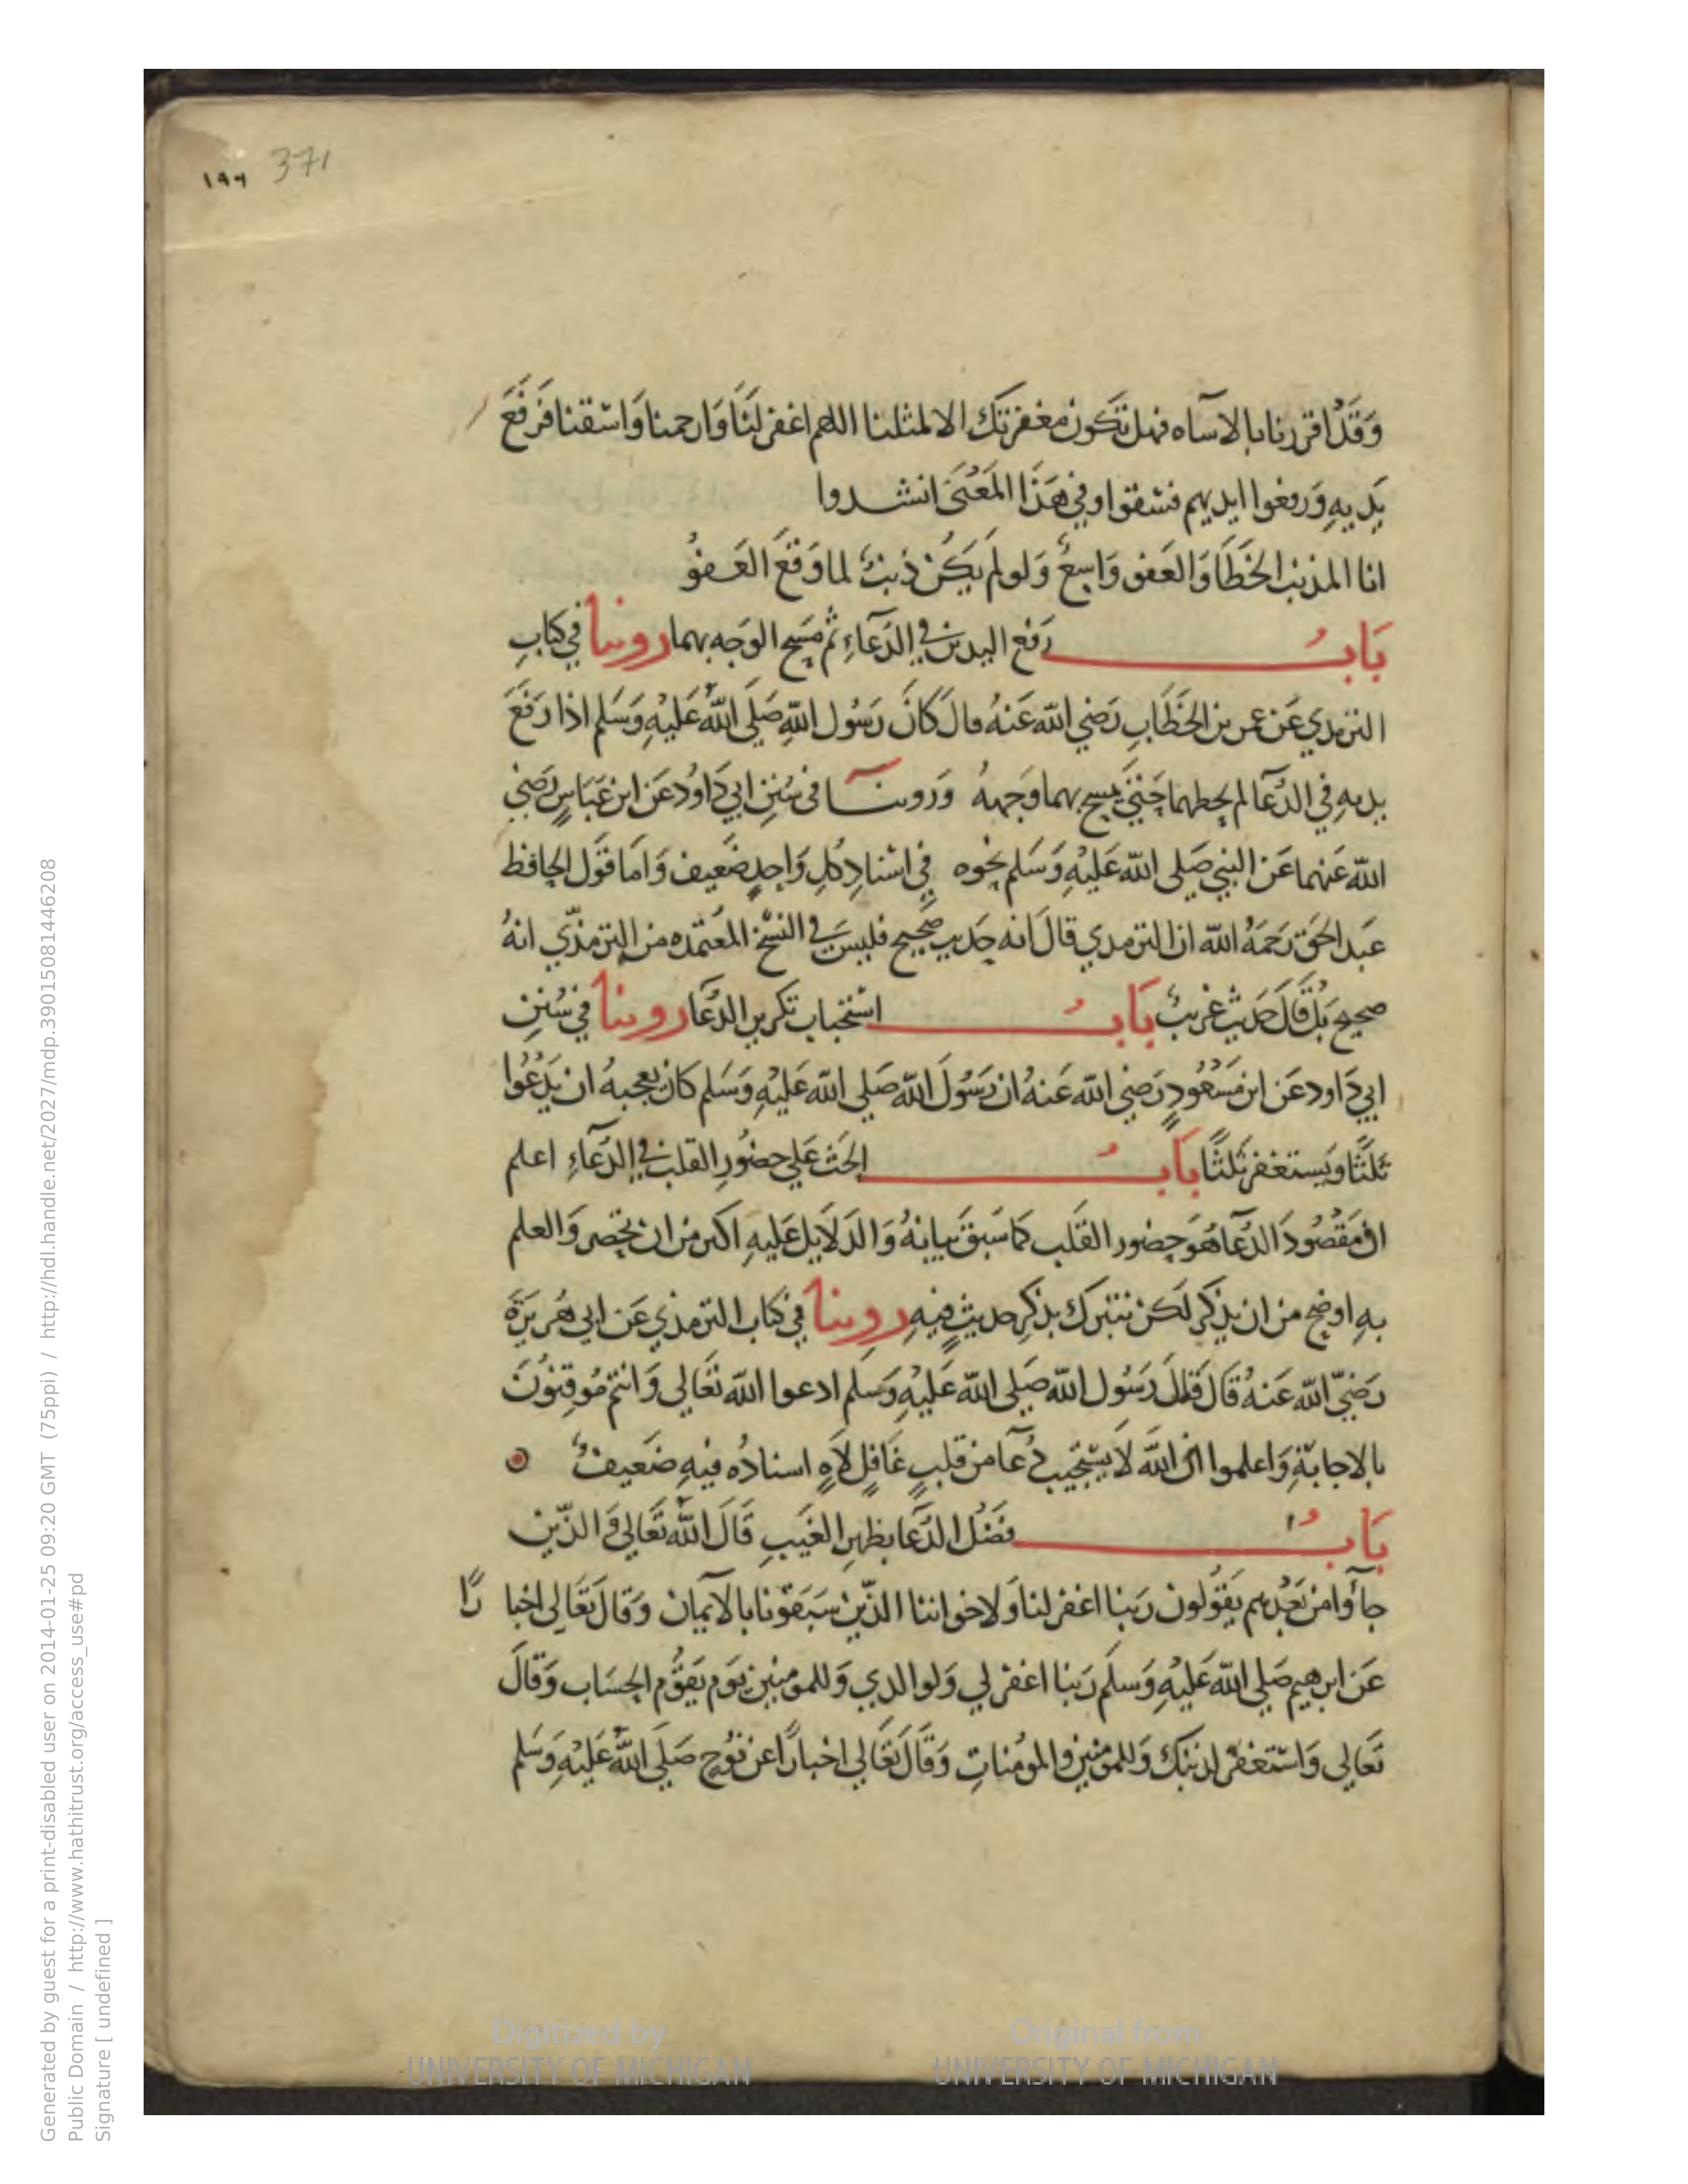 ١٩٦ 371
وَقَدْ اقررنا بالاسآه فهل تَكون مغفرتك الا لمثلنا اللهم اغفر لَنَا وَارحمنا وَاسْقنا فَرفَعَ
يَديهِ وَرفعوا ايديهم فسُقوا وفي هَذَا المَعْنَى انشدوا
انا المذنب الخَطَّا وَالعَفو وَاسِعٌ وَلو لَم يَكُن ذَنبٌ لما وَقَعَ العَفوُ
بَابُ رَفع اليدين في الدَعآءِ ثُم مَسَح الوَجه بهما روينا في كتابِ
الترمدي عَن عمر بن الخَطّابِ رَضي الله عَنهُ قال كَانَ رَسُول اللهِ صَلَى اللهُ عَليْهِ وَسَلم اذا رَفَعَ
يديهِ في الدُعآ لم يحطهما حَتيَ يمسح بهما وَجههُ وَروينَا في سُنَنِ ابي دَاوُد عَن ابن عَبَاسٍ رَضي
الله عَنهما عَن النبي صَلى الله عَليْهِ وَسَلم نحوه في اسْنادِ كُلِ وَاحِدٍ ضَعيف وَامَا قَول الحافظ
عَبد الحق رَحمَهُ الله ان الترمدي قالَ انه حَديث صَحيح فليسَ في النسْخ المعتَمده من الترمذّي انهُ
صحيح بَلْ قَالَ حَديث غريبٌ بَابُ اسْتحباب تكرير الدُعَا روينا في سُنَنِ
ابي دَاود عَن ابن مَسْعُودٍ رَضي الله عَنهُ ان رَسُولَ الله صَلى الله عَليْهِ وَسَلم كان يعجبهُ ان يَدْعُوا
ثَلثًا وَيَستغفر ثلثًا بَابُ الحَث عَلي حضُورِ القلب في الدُعآءِ اعلم
ان مَقْصُودَ الدُعآ هُوَ حضور القَلب كما سَبقَ بيانهُ وَالدَلايل عَليهِ اكثر من ان تحصر وَالعلم
بهِ اوضح من ان يذكر لَكن نتبرك بذكرِ حديثٍ فيهِ روينا في كتاب الترمذي عَن ابي هُريرَةَ
رَضيّ الله عَنهُ قَالَ قَالَ رَسُول الله صَلى الله عَليْهِ وَسَلم ادعوا الله تعَالي وَانتم مُوقِنُونَ
بالاجابَةِ وَاعلموا ان اللهَ لَا يسْتَجيب دُعآ من قلبٍ غَافلٍ لَاهٍ اسنادُه فيهِ ضَعيفٌ
بَابُ فضْل الدُعَا بظهرِ الغَيبِ قَالَ اللهُ تَعَالي وَالذّين
جآؤا من بَعْدِهم يَقوُلون رَبنا اغفر لنا وَلاخواننا الذّين سَبَقوُنا بالايمان وَقالَ تعَالى اخبا رًا
عَن ابرهيم صَلي الله عَليْهِ وَسلم رَبنا اغفر لي وَلوالدي وَللمومنين يَوم يَقوُم الحسَاب وَقالَ
تَعَالي وَاسْتَغفر لذنبك وَللمومنين والمومُنات وَقَالَ تعَالي اخبارًا عَن نوُح صَلى اللهُ عَليْهِ وَسَلم
Generated by guest for a print-disabled user on 2014-01-25 09:20 GMT (75ppi) / http://hdl.handle.net/2027/mdp.39015081446208
Public Domain / http://www.hathitrust.org/access_use#pd
Signature [ undefined ]
Digitized by UNIVERSITY OF MICHIGAN
Original from UNIVERSITY OF MICHIGAN